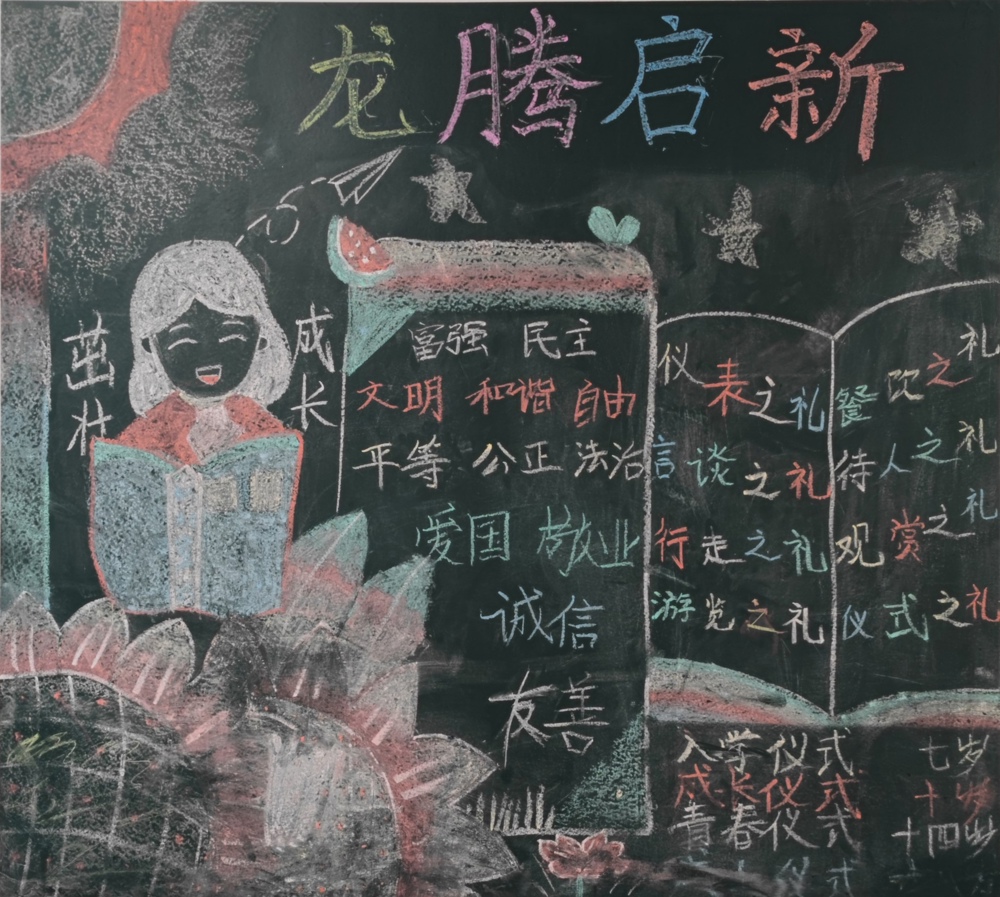 龙腾启新
茁壮
成长
富强 民主
文明 和谐 自由
平等 公正 法治
爱国 敬业
诚信
友善
仪表之礼
言谈之礼
行走之礼
游览之礼
餐饮之礼
待人之礼
观赏之礼
仪式之礼
入学仪式 七岁
成长仪式 十岁
青春仪式 十四岁